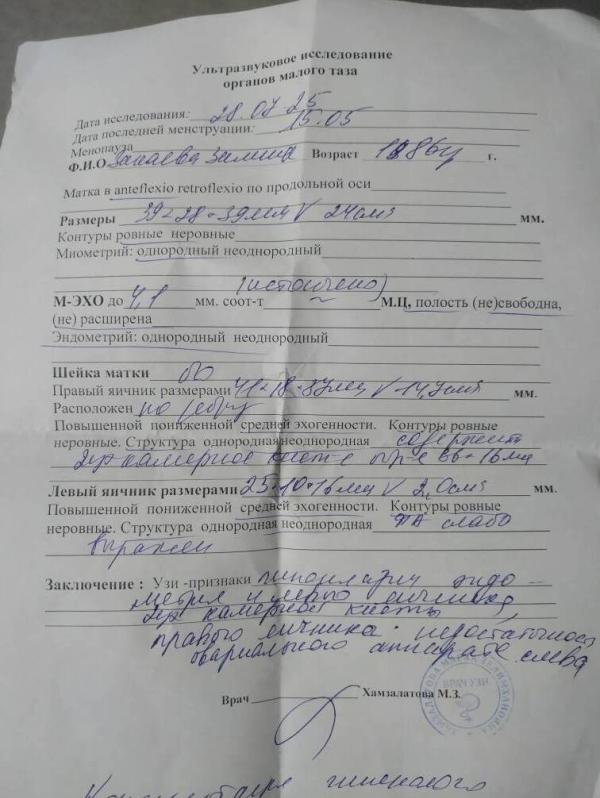 Ультразвуковое исследование
органов малого таза
Дата исследования: 28.07.25
Дата последней менструации: 15.05
Менопауза
Ф.И.О Закаева Залина Возраст 1986 г.
Матка в anteflexio retroflexio по продольной оси
Размеры 39×28×39мм V 24см³ мм.
Контуры ровные неровные
Миометрий: однородный неоднородный
(истончено)
М-ЭХО до 4,1 мм. соот-т М.Ц, полость (не)свободна,
(не) расширена
Эндометрий: однородный неоднородный
Шейка матки б/о
Правый яичник размерами 41×18×37мм V-14,7см³ мм.
Расположен по ребру
Повышенной пониженной средней эхогенности. Контуры ровные
неровные. Структура однородная неоднородная содержит
2ух камерное кист-е обр-е 16мм
Левый яичник размерами 25×10×16мм V 2,0см³ мм.
Повышенной пониженной средней эхогенности. Контуры ровные
неровные. Структура однородная неоднородная ФА слабо
выражен
Заключение : Узи -признаки гипоплазии эндо-
метрия и левого яичника,
2ух камерной кисты
правого яичника. недостаточность
овариального аппарата слева
Врач Хамзалатова М.З.
ВРАЧ УЗИ
Консультация гинеколога